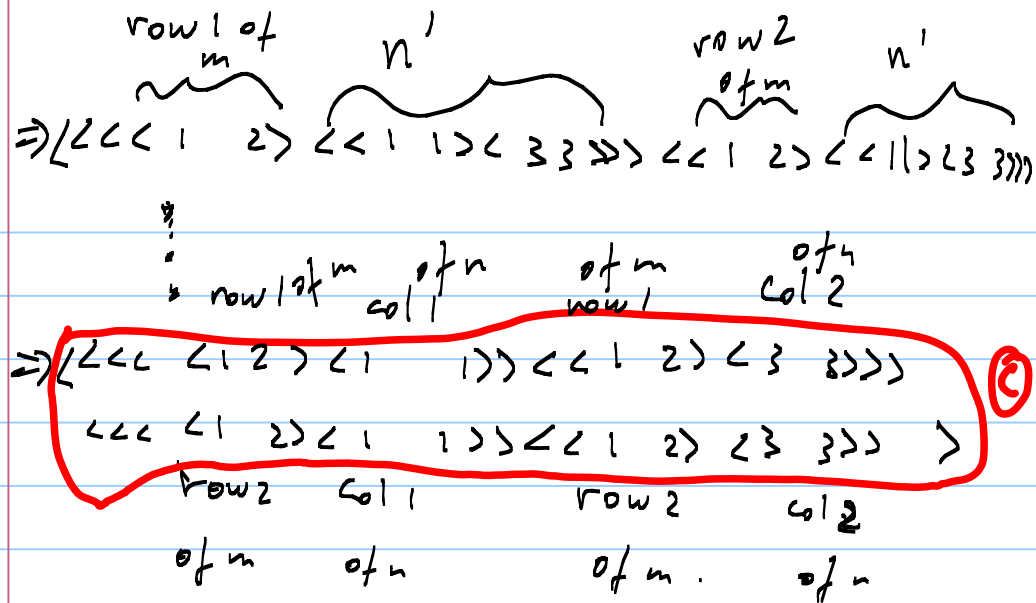 row 1 of m n' row 2 of m n'
⇒(<<< 1 2> <<1 1><3 3>>> <<1 2> <<11><3 3>>>
row 1 of m col 1 of n of m row 1 of n col 2
⇒(<<< <1 2> <1 1>><<1 2> <3 3>>>
<<< <1 2> <1 1>><<1 2> <3 3>> >
C
row 2 col 1 row 2 col 2
of m of n of m. of n